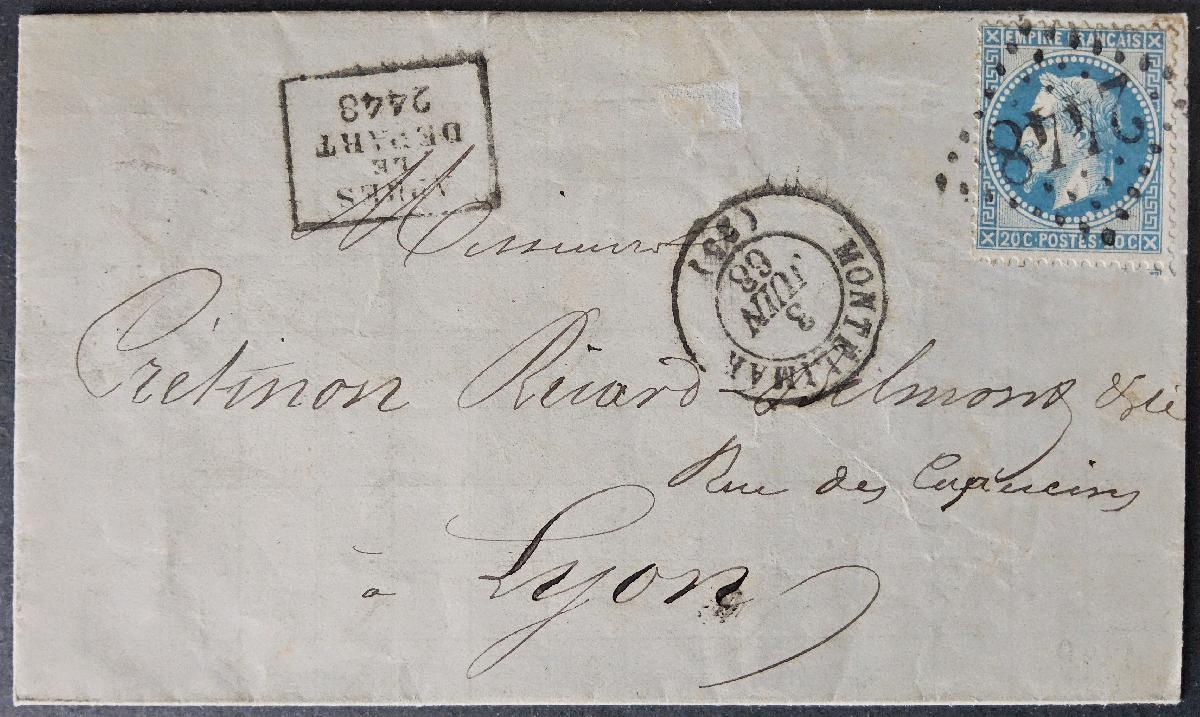 APRES
LE
DEPART
2448
EMPIRE FRANÇAIS
2448
20 C. POSTES 20 C
MONTELIMAR (25)
3
JUIN
68
Messieurs
Prétinon Ricard Delmont & Cie
Rue des Capucins
à Lyon